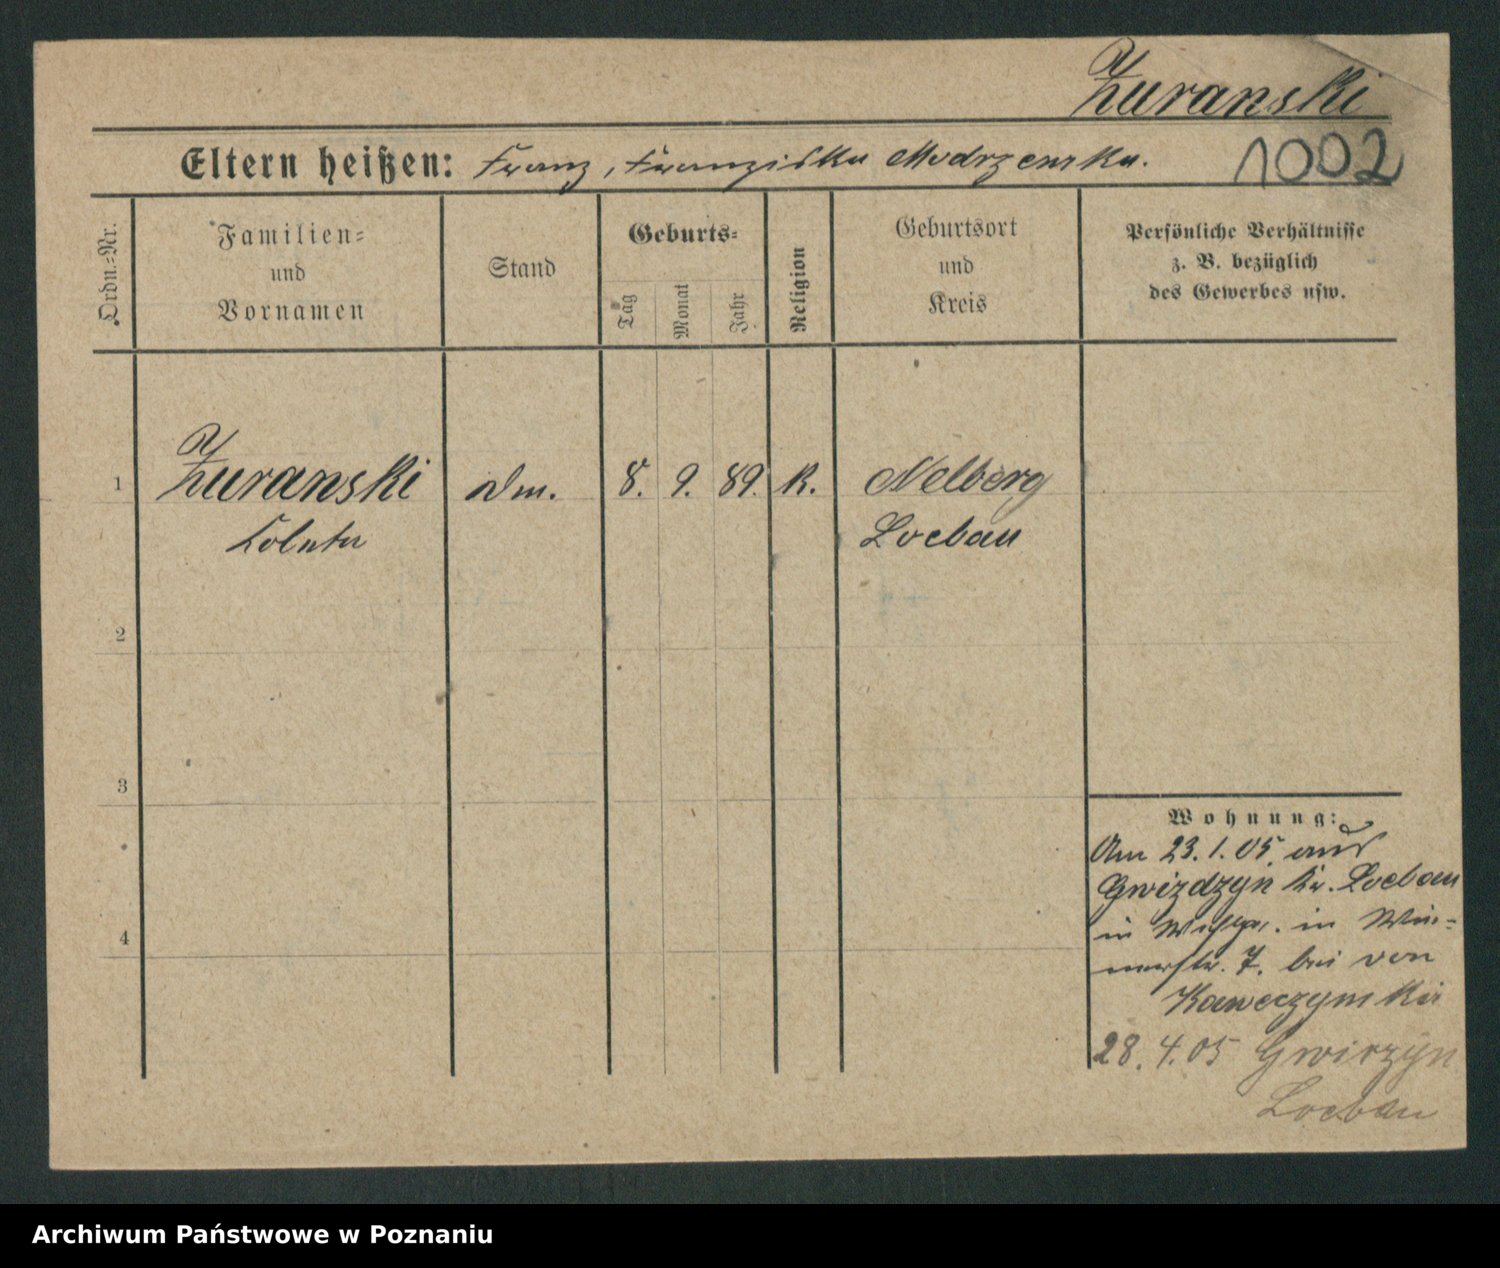 Żuranski
Eltern heißen: Franz, Franziska Modrzewska.
1002
Ordn.-Nr.
Familien-
und
Vornamen
Stand
Geburts-
Tag
Monat
Jahr
Religion
Geburtsort
und
Kreis
Persönliche Verhältnisse
z. B. bezüglich
des Gewerbes usw.
1
Żuranski
8. 9. 89. K.
Nelberg
Loebau
2
3
4
Wohnung:
Am 23.1.05 aus
Gwizdzyn Kr. Loebau
in
in
7. bei von
28.4.05
Loebau
Archiwum Państwowe w Poznaniu